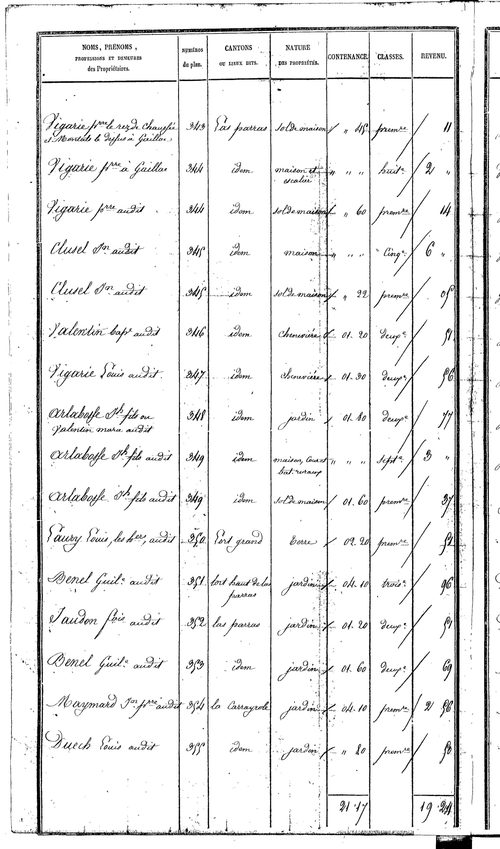 NOMS, PRÉNOMS, PROFESSIONS ET DEMEURES des Propriétaires. NUMÉROS du plan. CANTONS OU LIEUX DITS. NATURE DES PROPRIÉTÉS. CONTENANCE. CLASSES. REVENU.
Vigarie pre le rez de Chaussée 343 Las parras sol de maison " 45 premre 11
et Martals le dessus à Gaillac
Vigarie pre à Gaillac 344 idem maison et escalier " " " huite 2 "
Vigarie pre audit 344 idem sol de maison " 60 premre 14
Clusel Jn audit 345 idem maison " " " Cinqe 6 "
Clusel Jn audit 345 idem sol de maison " 22 premre 05
Valentin Bapt audit 346 idem chenevière 01.20 deuxe 51
Vigarie Louis audit 347 idem chenevière 01.30 deuxe 56
Arlabosse Jh fils ou 348 idem jardin 01.80 deuxe 77
Valentin marie audit
Arlabosse Jh fils audit 349 idem maison, cour et bat. ruraux " " " septe 3 "
Arlabosse Jh fils audit 349 idem sol de maison 01.60 premre 37
Laury Louis, les hers, audit 350 Lort grand terre 02.20 premre 52
Benel Guile audit 351 lort haut de las parras jardin 04.10 troise 96
Jaudon fois audit 352 las parras jardin 01.20 deuxe 51
Benel Guile audit 353 idem jardin 01.60 deuxe 69
Maymard Jn pre audit 354 la Carrayrole jardin 04.10 premre 2 56
Duech Louis audit 355 idem jardin " 80 premre 50
21.17 19.24